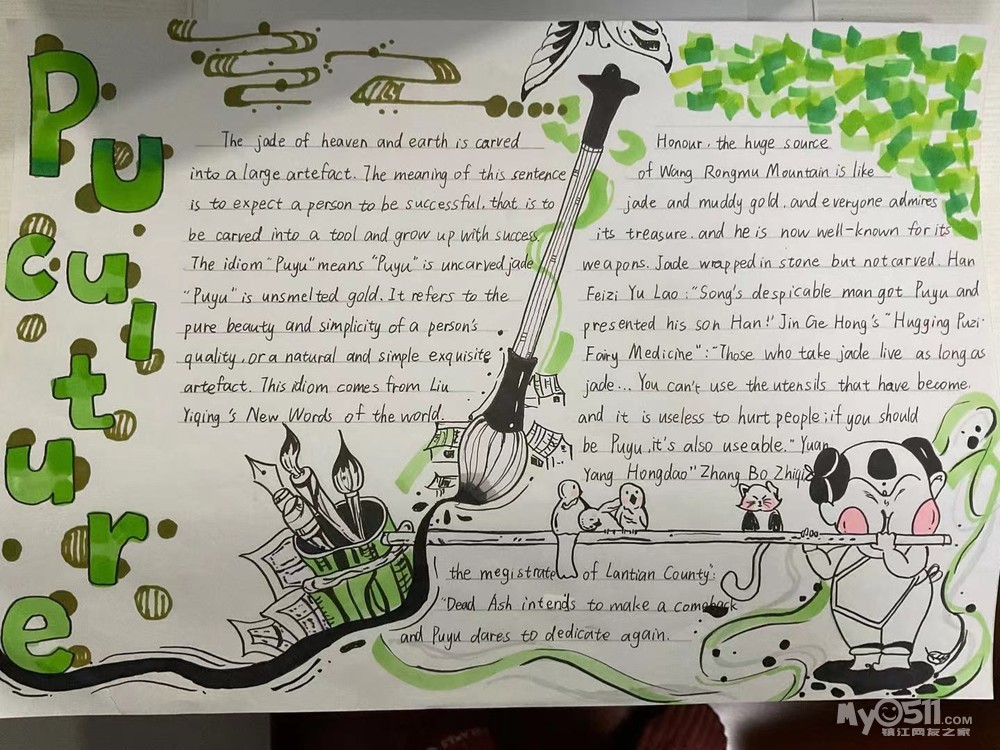 Pu
culture
The jade of heaven and earth is carved
into a large artefact. The meaning of this sentence
is to expect a person to be successful, that is to
be carved into a tool and grow up with success.
The idiom "Puyu" means "Puyu" is uncarved jade
"Puyu" is unsmelted gold. It refers to the
pure beauty and simplicity of a person's
quality, or a natural and simple exquisite
artefact. This idiom comes from Liu
Yiqing's New Words of the world.
Honour, the huge source
of Wang Rongmu Mountain is like
jade and muddy gold, and everyone admires
its treasure, and he is now well-known for its
weapons. Jade wrapped in stone but not carved. Han
Feizi Yu Lao: "Song's despicable man got Puyu and
presented his son Han!" Jin Ge Hong's "Hugging Puzi·
Fairy Medicine": "Those who take jade live as long as
jade... You can't use the utensils that have become,
and it is useless to hurt people; if you should
be Puyu, it's also useable." Yuan
Yang Hongdao" Zhang Bo Zhiqi
the megistrate of Lantian County":
"Dead Ash intends to make a comeback
and Puyu dares to dedicate again.
My0511.COM
镇江网友之家